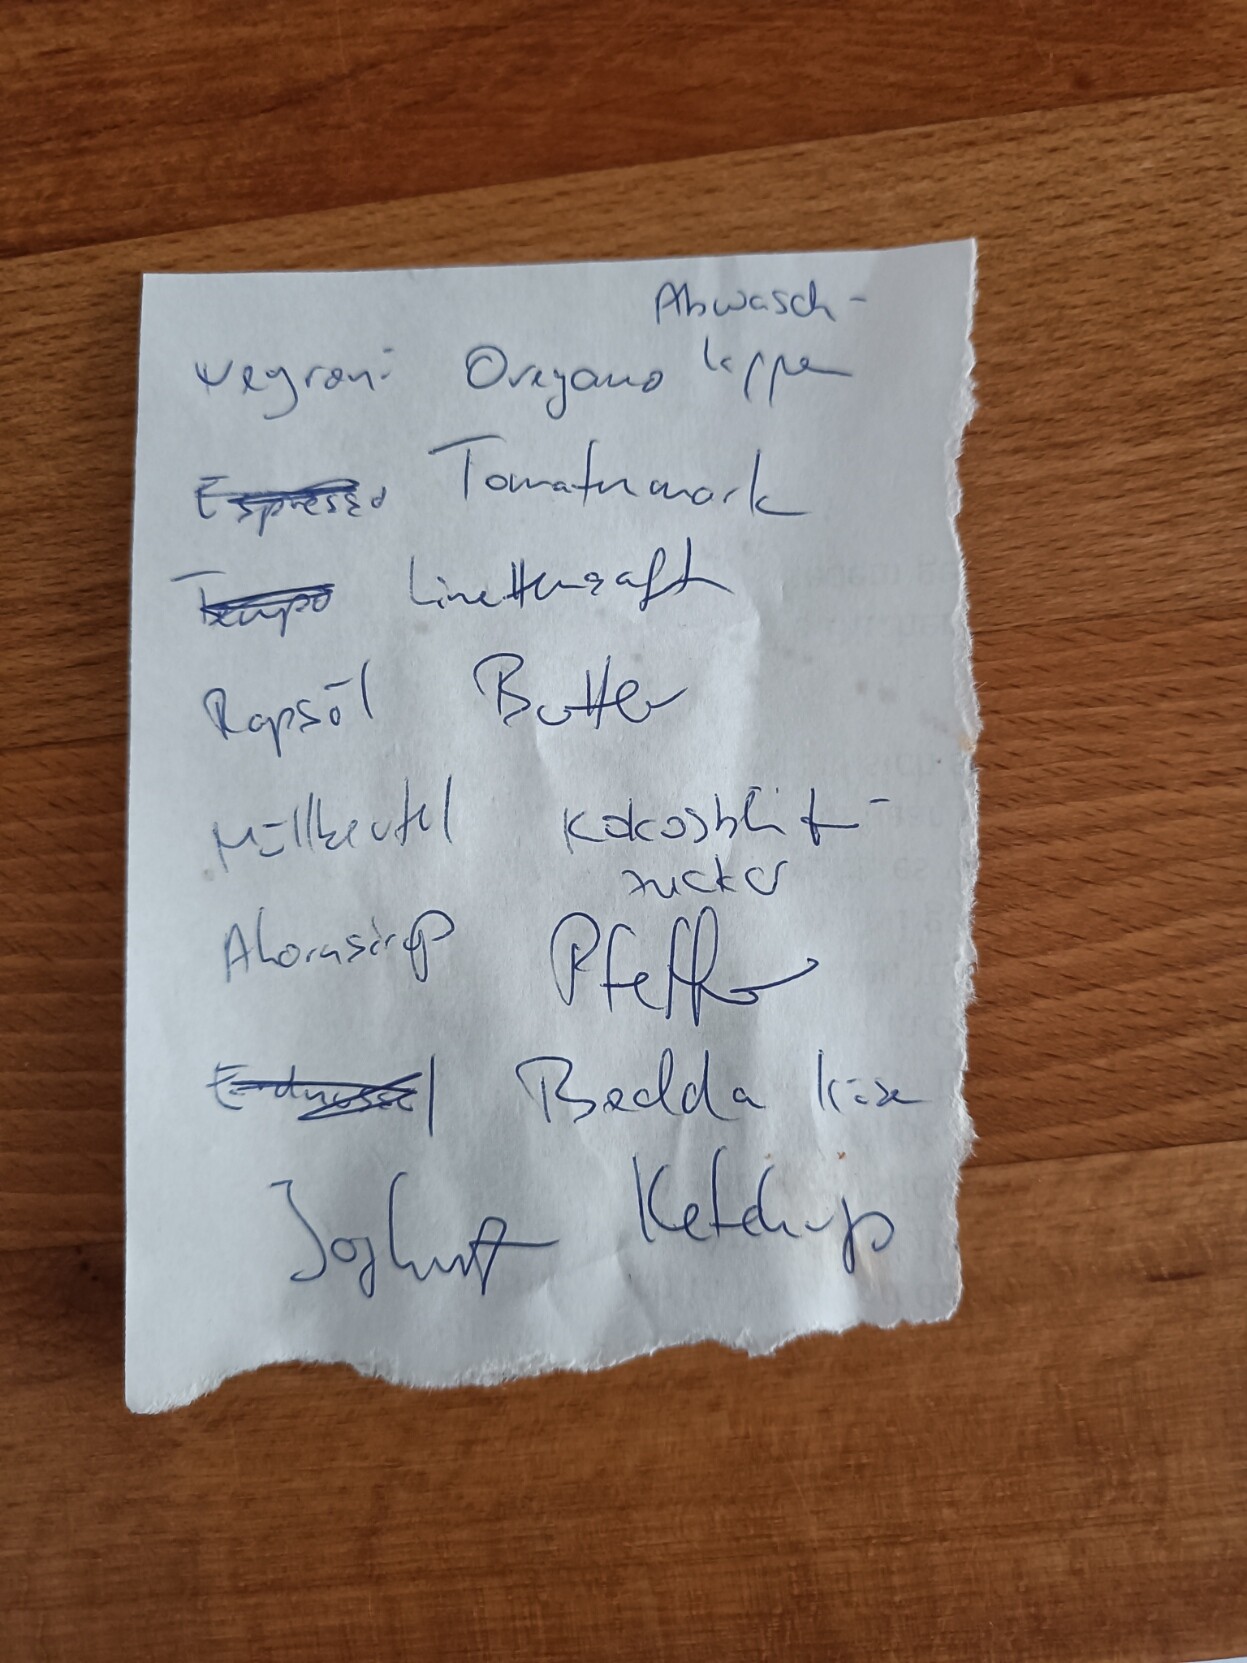 Abwasch-
Negroni Oregano lappen
Espresso Tomatenmark
Tempo Limettensaft
Rapsöl Butter
Müllbeutel Kokosblüt-
zucker
Ahornsirup Pfeffer
Erdnussöl Bedda Käse
Joghurt Ketchup